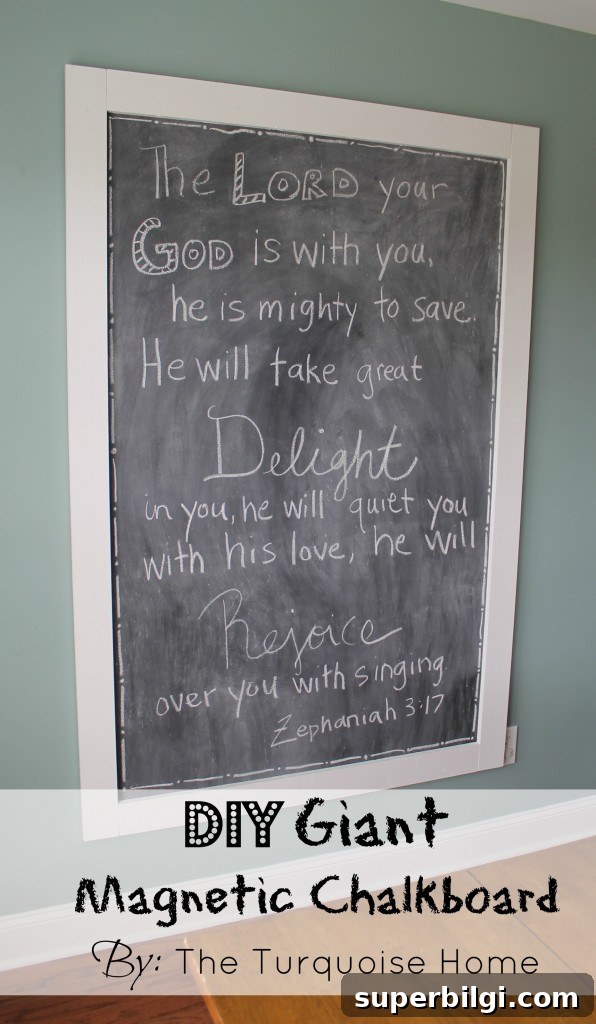 The LORD your
GOD is with you,
he is mighty to save.
He will take great
Delight
in you, he will quiet you
with his love, he will
Rejoice
over you with singing.
Zephaniah 3:17
DIY Giant
Magnetic Chalkboard
By: The Turquoise Home
superbilgi.com